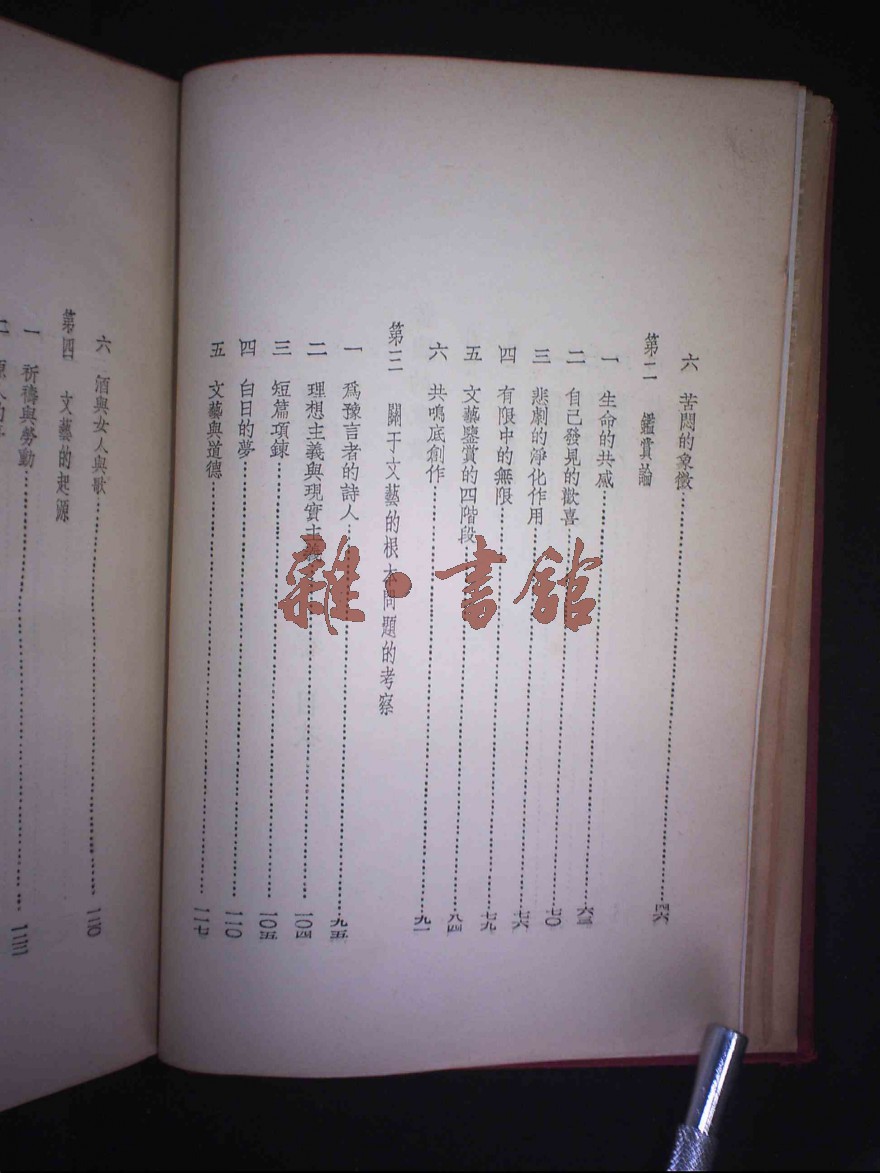 六 苦悶的象徵……四六
第二 鑑賞論
一 生命的共感……六三
二 自己發見的歡喜……七〇
三 悲劇的淨化作用……七六
四 有限中的無限……七九
五 文藝鑒賞的四階段……八四
六 共鳴底創作……九一
第三 關于文藝的根本問題的考察
一 爲豫言者的詩人……九五
二 理想主義與現實主義……一〇四
三 短篇項鍊……一〇五
四 白日的夢……一一〇
五 文藝與道德……一一七
六 酒與女人與歌……一二〇
第四 文藝的起源
一 祈禱與勞動
二
雜·書館